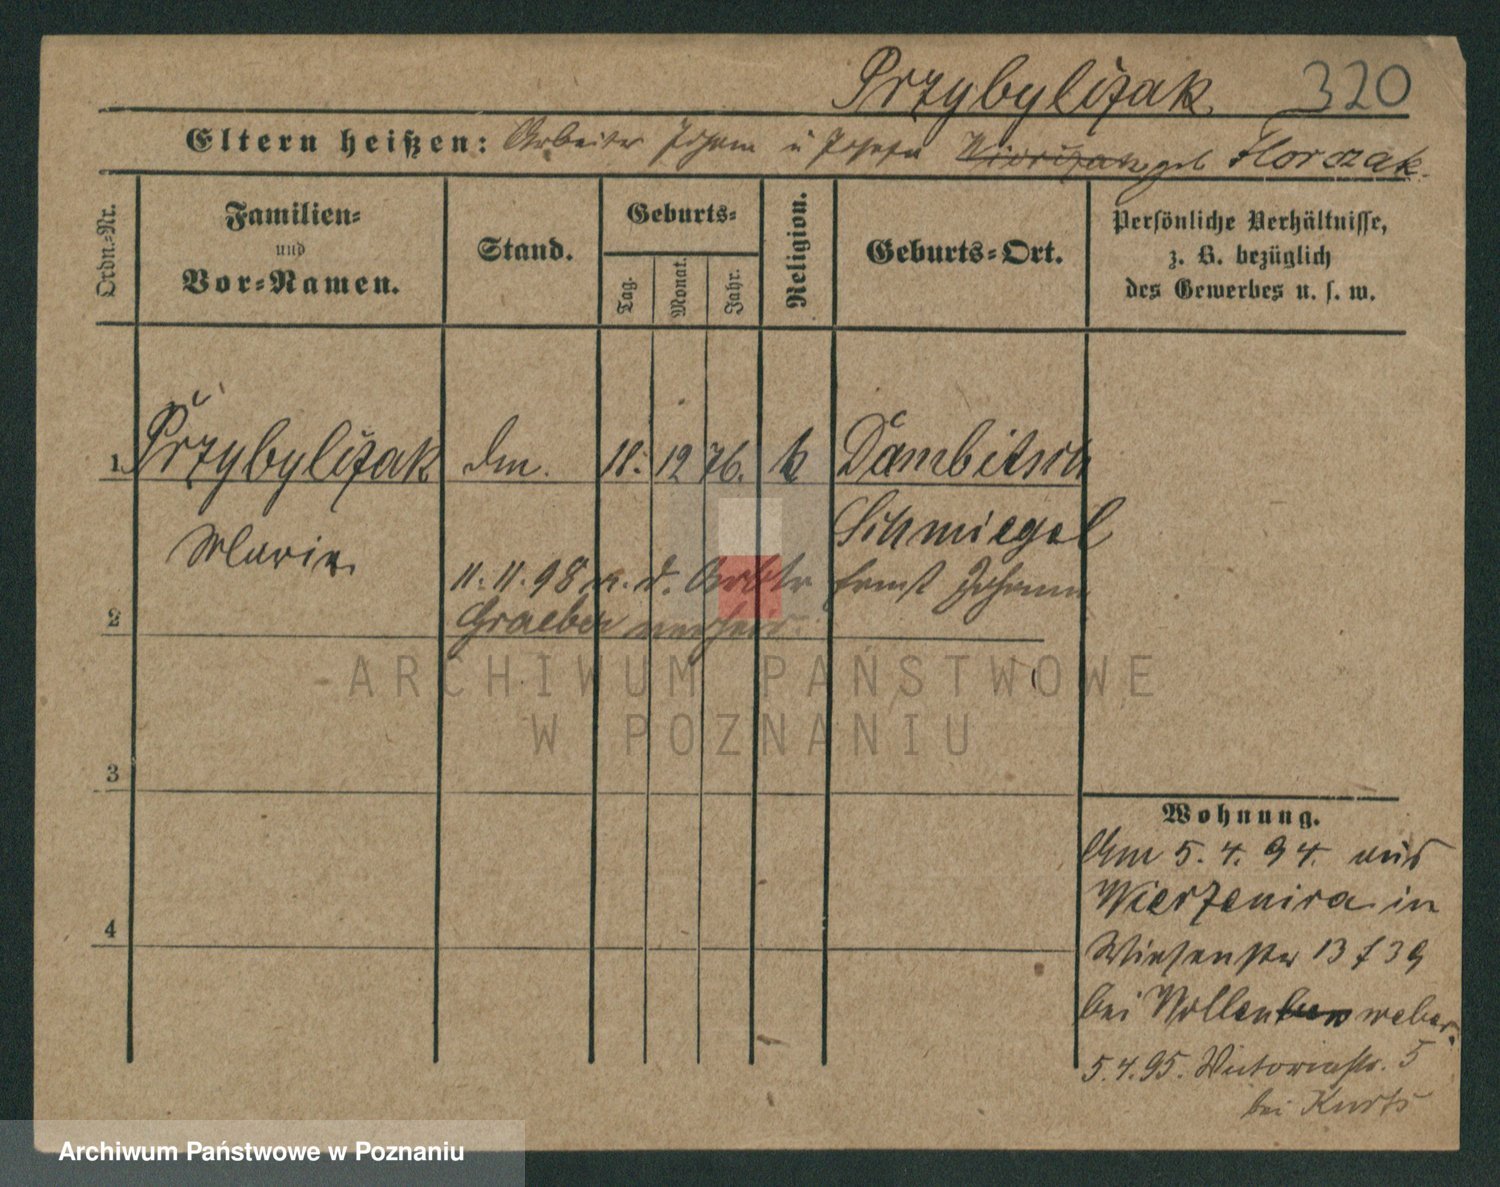 Przybyliżak 320
Eltern heißen: Arbeiter Johann u Josefa geb Florczak.
Ordn.-Nr.
Familien-
und
Vor-Namen.
Stand.
Geburts-
Tag.
Monat.
Jahr.
Religion.
Geburts-Ort.
Persönliche Verhältnisse,
z. B. bezüglich
des Gewerbes u. s. w.
1 Przybyliżak 18. 12 76. k Dambitsch
Schmiegel
Marie
11. 11. 98 m. d. Arbtr Ernst Johann
2 Graeber verheir.
ARCHIWUM PAŃSTWOWE
W POZNANIU
3
4
Wohnung.
Am 5. 4. 94. aus
Wierzenica in
Wiesenstr 13 f 39
bei Wollen weber.
5.4.95. Victoriastr. 5
bei Kurts
Archiwum Państwowe w Poznaniu